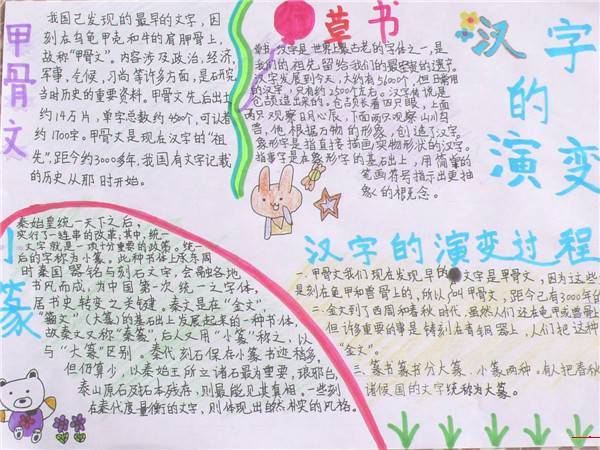 汉字
的
演变
甲骨文
我国已发现的最早的文字，因
刻在乌龟甲壳和牛的肩胛骨上，
故称"甲骨文"。内容涉及政治，经济，
军事，气候，习尚等许多方面，是研究
当时历史的重要资料。甲骨文先后出土
约14万片，单字总数约4500个，可认者
约1700字。甲骨文是现在汉字的"祖
先"，距今约3000多年，我国有文字记载
的历史从那时开始。
草书
草书，汉字是世界上最古老的字体之一，是
我们的祖先留给我们的最宝贵的遗产。
汉字发展到今天，大约有56000个，但日常用
的汉字，只有约2500个左右。汉字传说是
仓颉造出来的。仓颉长着四只眼，上面
两只观察日月心辰，下面两只观察山川鸟
兽，他根据万物的形象，创造了汉字。
象形字是指直接描画实物形状的汉字。
指事字是在象形字的基础上，用简单的
笔画符号指示出更抽
象的概念。
小篆
秦始皇统一天下之后，
实行了一连串的改革，其中，统一
文字就是一项十分重要的政策。统一
后的字称为小篆。此种书体上承东周
时秦国器铭与刻石文字，会融各地，
书风而成，为中国第一次统一之字体，
居书史转变之关键。秦文是在"金文"
"籀文"（大篆）的基础上发展起来的一种书体，
故秦文又称"秦篆"，后人又用"小篆"称之，以
与"大篆"区别。秦代刻石保存小篆书迹极多，
但仍算少，以秦始王所立诸石最为重要，琅邪台，
泰山原石及拓本残存，则最能见其真相。一些刻
在秦代度量衡的文字，则体现出自然朴实的风格。
汉字的演变过程
一、甲骨文我们现在发现早的文字是甲骨文，因为这些
是刻在龟甲和兽骨上的，所以叫甲骨文，距今已有3000年的
二、金文到了西周和春秋时代，虽然人们还在龟甲或兽骨上
但许多重要的事是铸刻在青铜器上，人们把这种
"金文"。
三、篆书篆书分大篆、小篆两种。有人把春秋
诸侯国的文字统称为大篆。